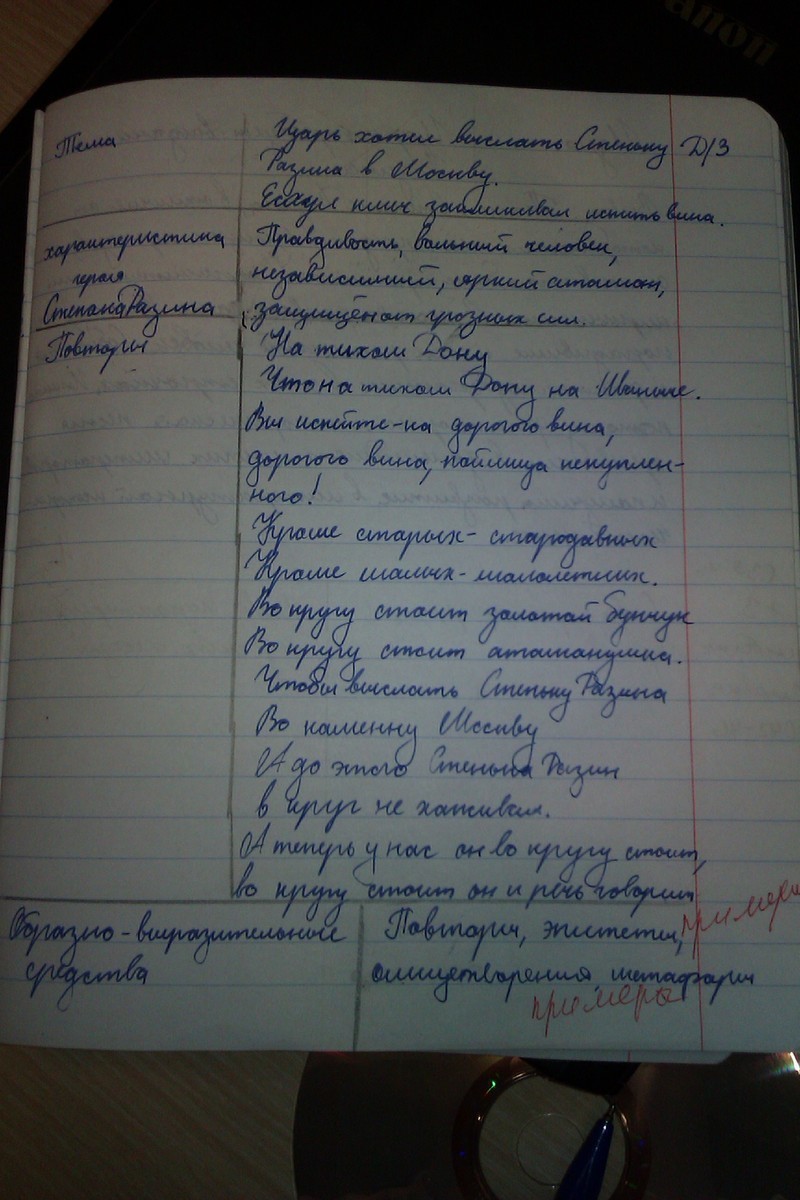 anon
Тема
Царь хотел выслать Стеньку Д/З
Разина в Москву.
Есаул клич закликивал испить вина.
характеристика
героя
Степана Разина
Правдивость, вольный человек,
независимый, яркий атаман,
защищён от грозных сил.
Повторы
На тихом Дону
Что на тихом Дону на Иваныче.
Вы испейте-ка дорогого вина,
дорогого вина, пойлица некуплен-
ного!
Кроме старых-стародавных
Кроме малых-малолетних.
Во кругу стоит золотой бунчук
Во кругу стоит атаманушка.
Чтобы выслать Стеньку Разина
Во каменну Москву
А до этого Стенька Разин
в круг не хаживал.
А теперь у нас он во кругу стоит,
во кругу стоит он и речь говорит
Образно-выразительные
средства
Повторы, эпитеты, примеры
олицетворения метафоры
примеры